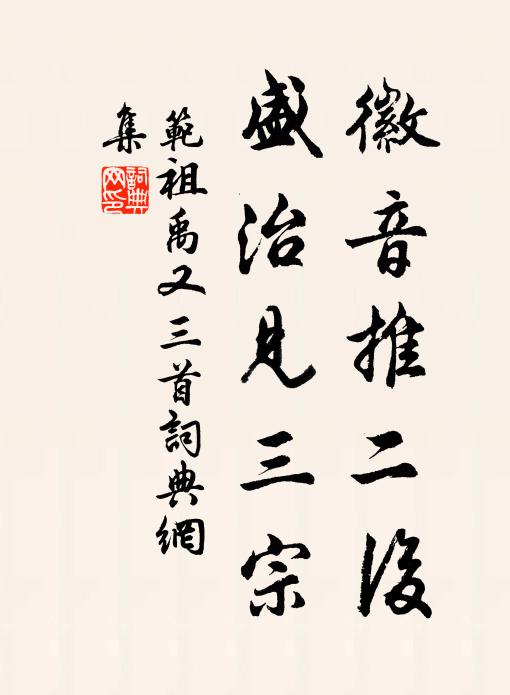 徽音推二後
盛治見三宗
範祖禹又三首詞典網
集
詞典网印